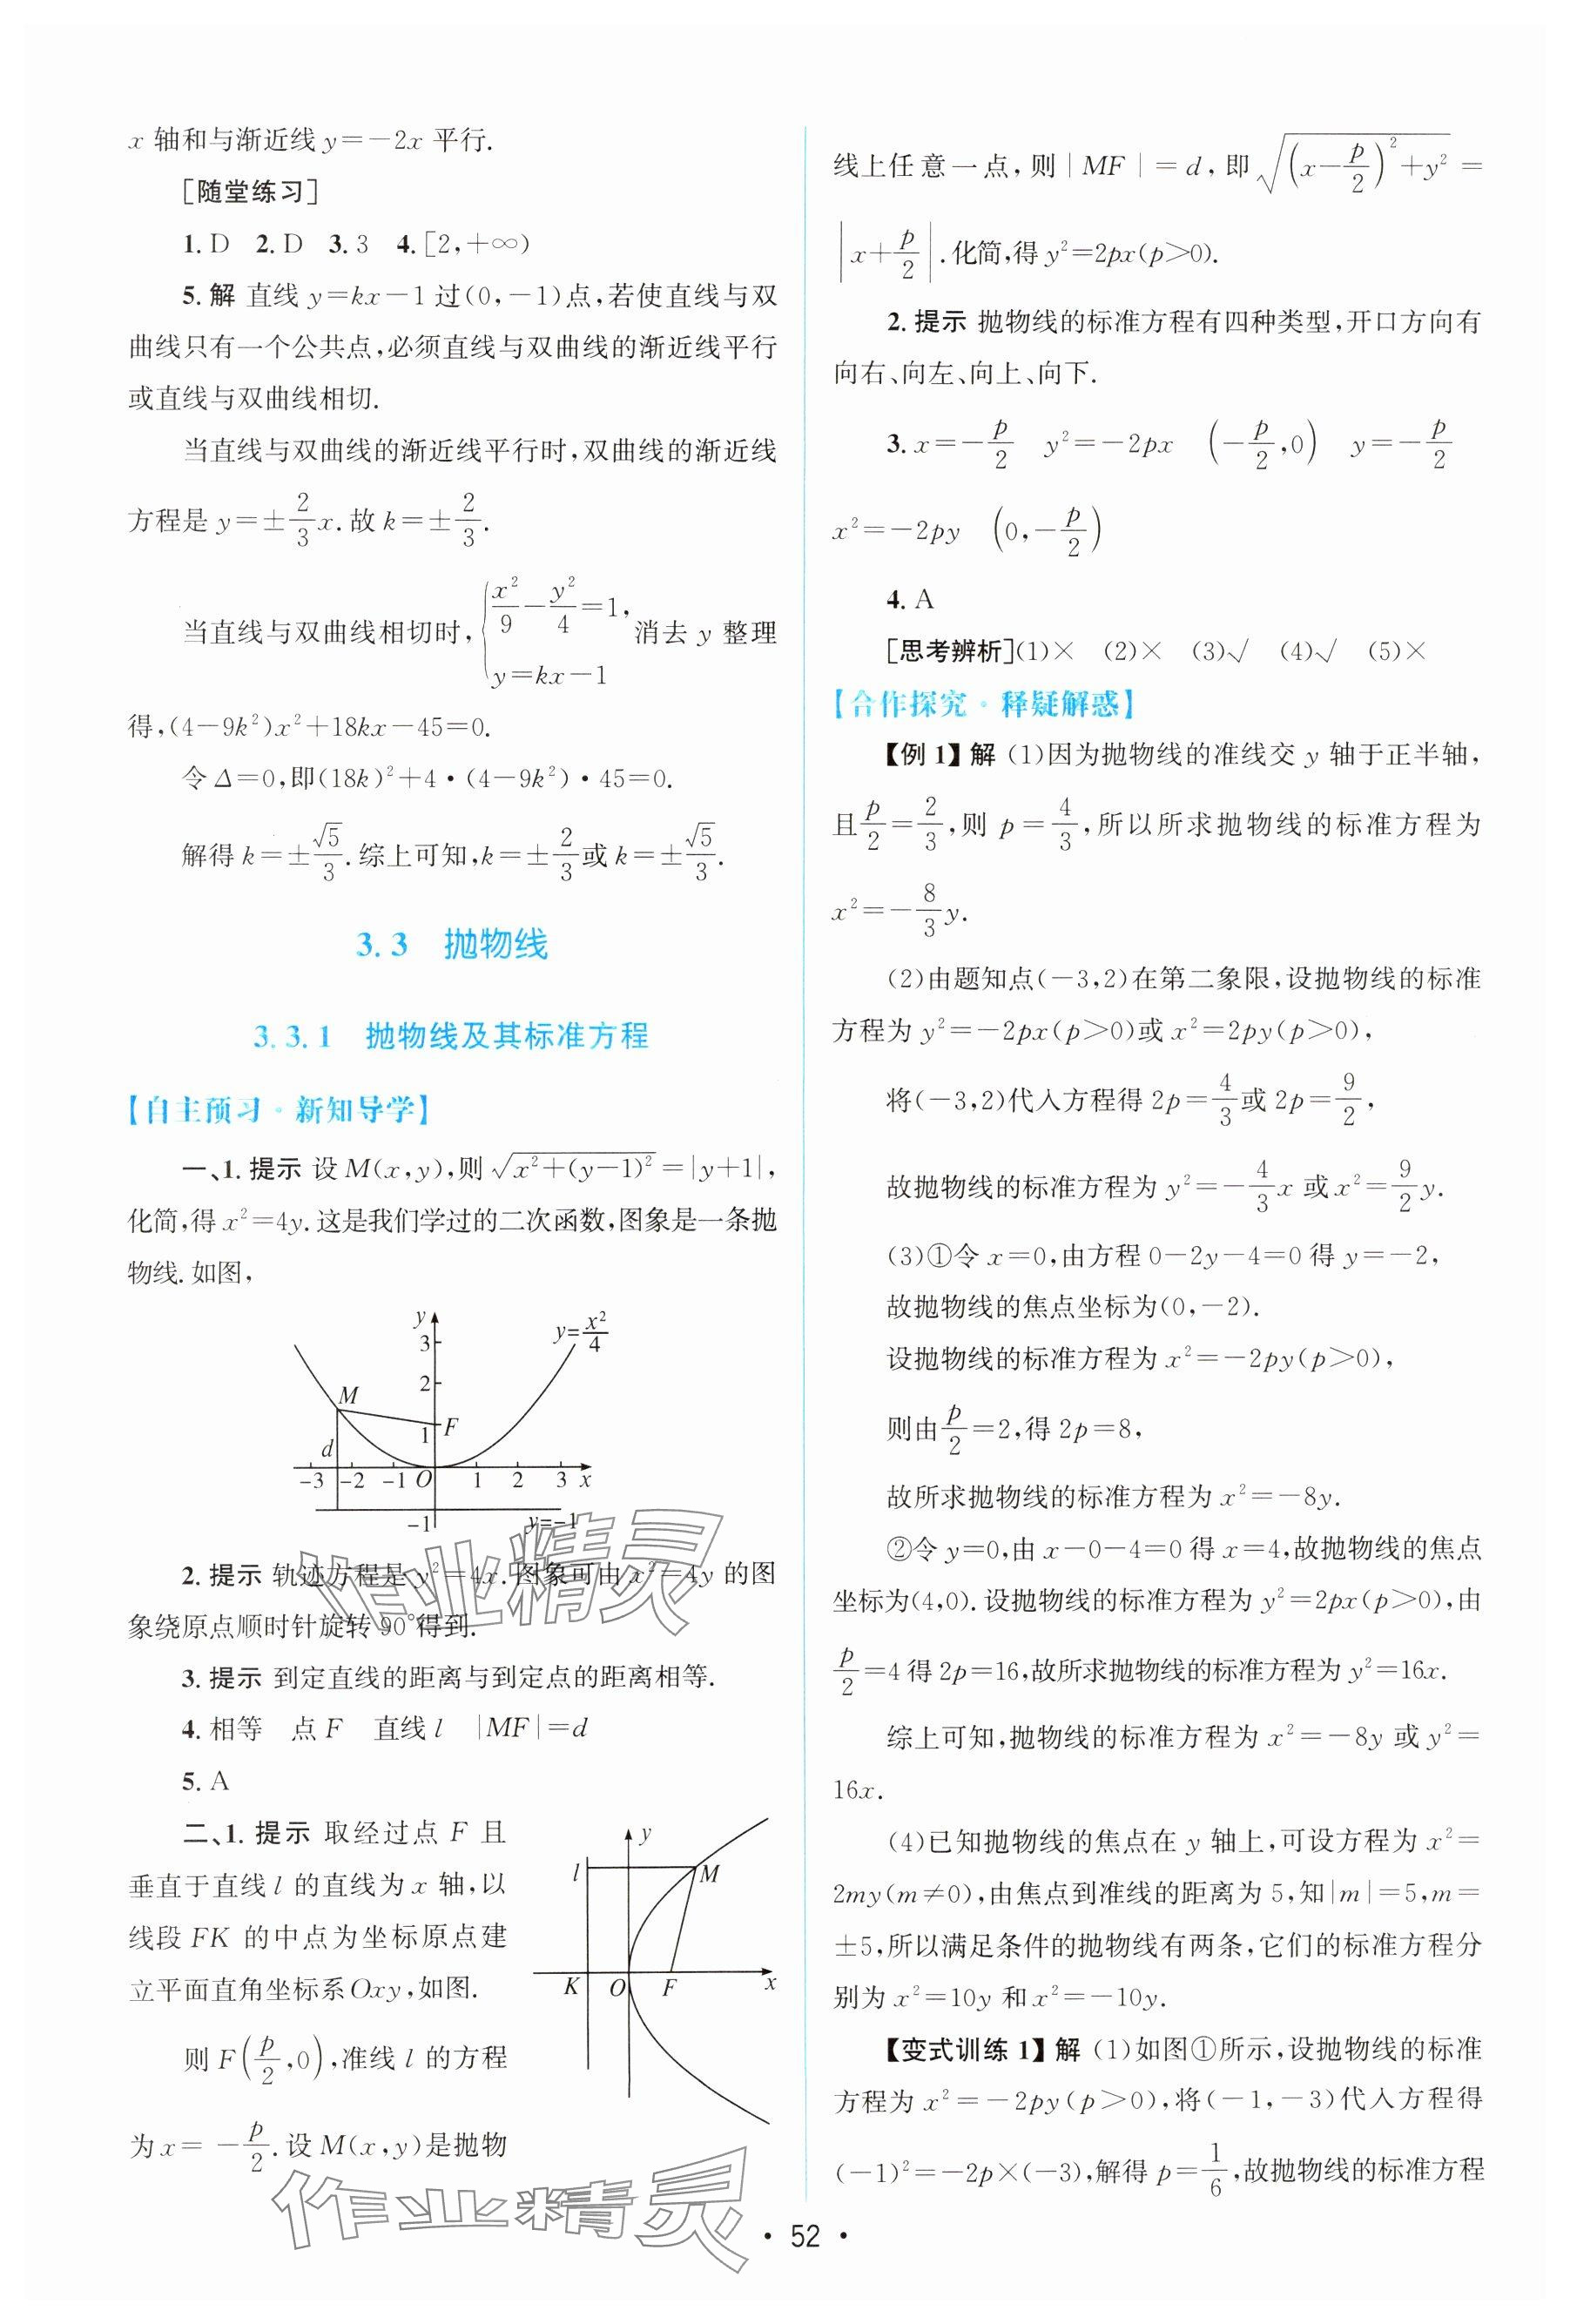 x 轴和与渐近线 y=-2x 平行.
[随堂练习]
1. D 2. D 3. 3 4. [2,+∞)
5. 解 直线 y=kx-1 过(0,-1)点,若使直线与双
曲线只有一个公共点,必须直线与双曲线的渐近线平行
或直线与双曲线相切.
当直线与双曲线的渐近线平行时,双曲线的渐近线
方程是 y=±2/3x. 故 k=±2/3.
当直线与双曲线相切时, { x²/9-y²/4=1, y=kx-1 消去 y 整理
得,(4-9k²)x²+18kx-45=0.
令 Δ=0,即(18k)²+4·(4-9k²)·45=0.
解得 k=±√5/3. 综上可知,k=±2/3或 k=±√5/3.
3.3 抛物线
3.3.1 抛物线及其标准方程
【自主预习·新知导学】
一、1. 提示 设 M(x,y),则 √(x²+(y-1)²)=|y+1|,
化简,得 x²=4y. 这是我们学过的二次函数,图象是一条抛
物线. 如图,
y
y=x²/4
3
2
M
F
1
d
-3 -2 -1 O 1 2 3 x
-1
y=-1
2. 提示 轨迹方程是 y²=4x. 图象可由 x²=4y 的图
象绕原点顺时针旋转 90°得到.
3. 提示 到定直线的距离与到定点的距离相等.
4. 相等 点 F 直线 l |MF|=d
5. A
二、1. 提示 取经过点 F 且
垂直于直线 l 的直线为 x 轴,以
线段 FK 的中点为坐标原点建
立平面直角坐标系 Oxy,如图.
y
l
M
K O F x
则 F(p/2,0),准线 l 的方程
为 x=-p/2. 设 M(x,y)是抛物
线上任意一点,则|MF|=d,即 √((x-p/2)²+y²)=
|x+p/2|. 化简,得 y²=2px(p>0).
2. 提示 抛物线的标准方程有四种类型,开口方向有
向右、向左、向上、向下.
3. x=-p/2 y²=-2px (-p/2,0) y=-p/2
x²=-2py (0,-p/2)
4. A
[思考辨析](1)× (2)× (3)√ (4)√ (5)×
【合作探究·释疑解惑】
【例 1】解 (1)因为抛物线的准线交 y 轴于正半轴,
且p/2=2/3,则 p=4/3,所以所求抛物线的标准方程为
x²=-8/3y.
(2)由题知点(-3,2)在第二象限,设抛物线的标准
方程为 y²=-2px(p>0)或 x²=2py(p>0),
将(-3,2)代入方程得 2p=4/3或 2p=9/2,
故抛物线的标准方程为 y²=-4/3x 或 x²=9/2y.
(3)①令 x=0,由方程 0-2y-4=0 得 y=-2,
故抛物线的焦点坐标为(0,-2).
设抛物线的标准方程为 x²=-2py(p>0),
则由p/2=2,得 2p=8,
故所求抛物线的标准方程为 x²=-8y.
②令 y=0,由 x-0-4=0 得 x=4,故抛物线的焦点
坐标为(4,0). 设抛物线的标准方程为 y²=2px(p>0),由
p/2=4 得 2p=16,故所求抛物线的标准方程为 y²=16x.
综上可知,抛物线的标准方程为 x²=-8y 或 y²=
16x.
(4)已知抛物线的焦点在 y 轴上,可设方程为 x²=
2my(m≠0),由焦点到准线的距离为 5,知|m|=5,m=
±5,所以满足条件的抛物线有两条,它们的标准方程分
别为 x²=10y 和 x²=-10y.
【变式训练 1】解 (1)如图①所示,设抛物线的标准
方程为 x²=-2py(p>0),将(-1,-3)代入方程得
(-1)²=-2p×(-3),解得 p=1/6,故抛物线的标准方程
· 52 ·
作业精灵
作业精灵